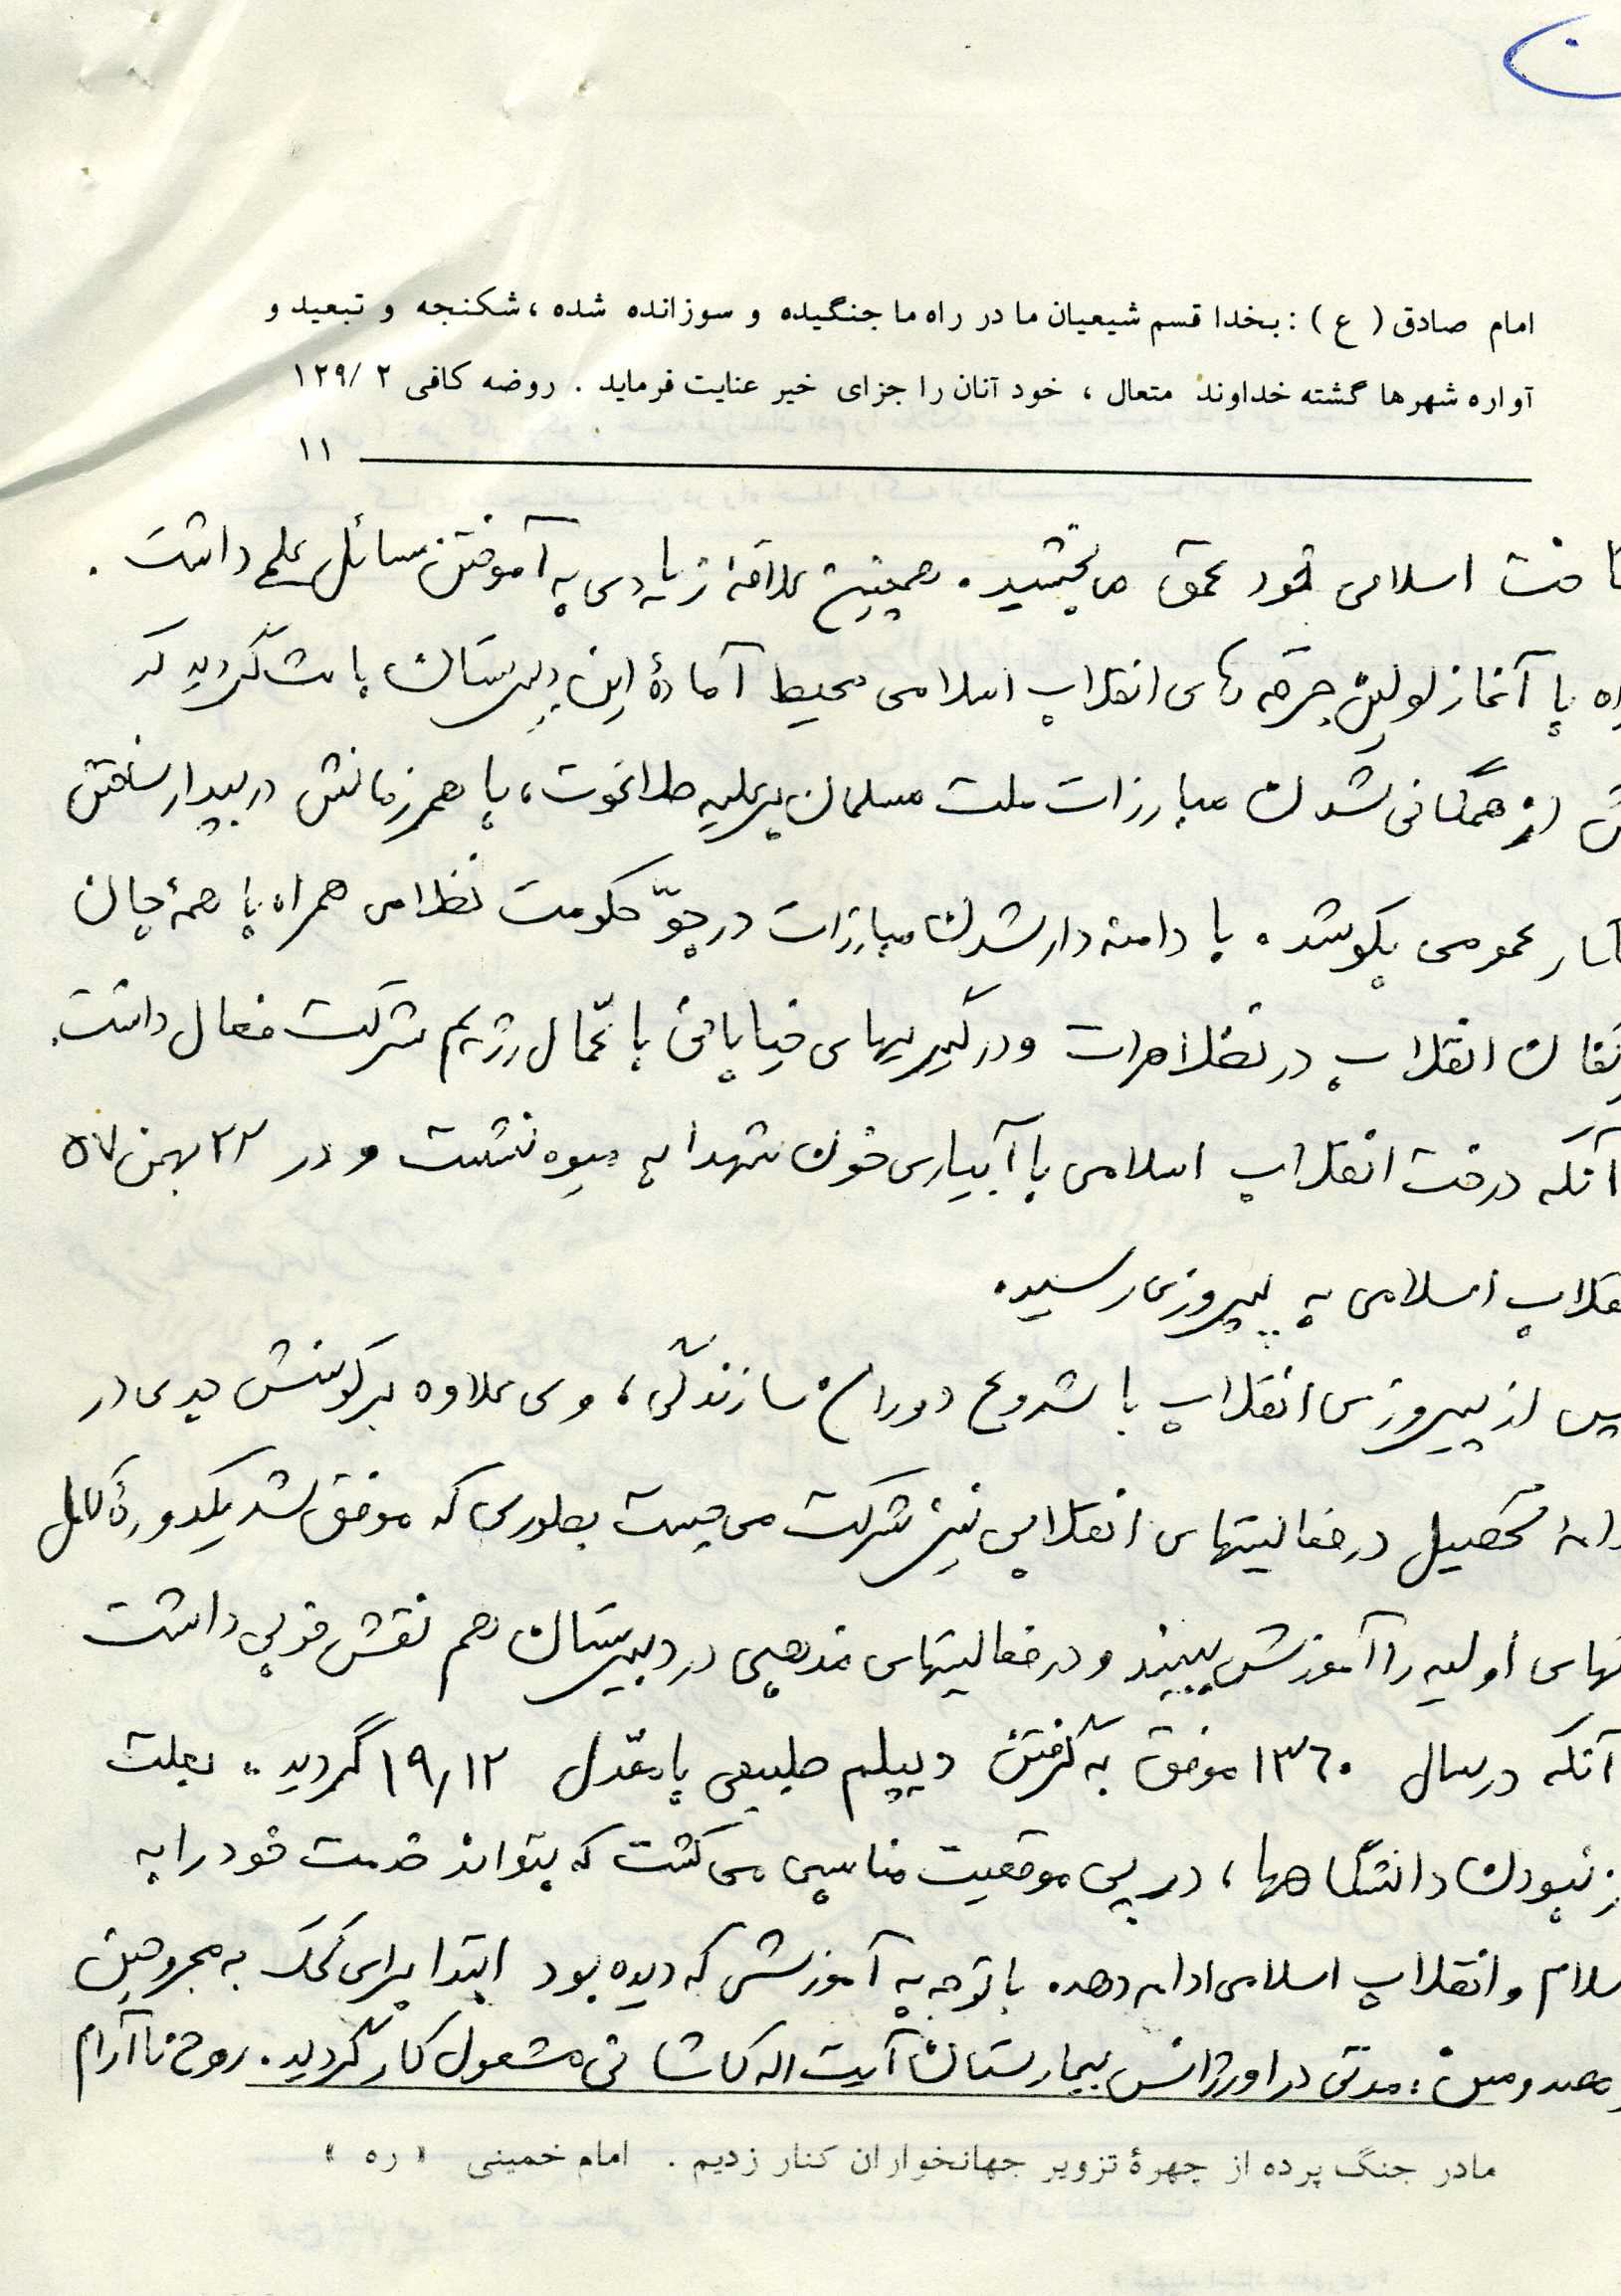 امام صادق (ع) : بخدا قسم شیعیان ما در راه ما جنگیده و سوزانده شده ، شکنجه و تبعید و
آواره شهرها گشته خداوند متعال ، خود آنان را جزای خیر عنایت فرماید . روضه کافی ۲ /۱۲۹
۱۱
اخت اسلامی خود عمق می بخشید . همچنین علاقهٔ زیادی به آموختن مسائل علمی داشت .
راه با آغاز اولین جرقه های انقلاب اسلامی محیط آمادهٔ این دبیرستان باعث گردید که
از همگانی شدن مبارزات ملت مسلمان بر علیه طاغوت ، با همرزمانش در بیدار ساختن
عمومی بکوشد . با دامنه دار شدن مبارزات در جوّ حکومت نظامی همراه با همهٔ جان
انقلاب در تظاهرات و درگیریهای خیابانی با عمّال رژیم شرکت فعال داشت .
آنکه درخت انقلاب اسلامی با آبیاری خون شهدا به میوه نشست و در ۲۲ بهمن ۵۷
قلاب اسلامی به پیروزی رسید .
پس از پیروزی انقلاب با شروع دوران سازندگی ، وی علاوه بر کوشش جدی در
دامهٔ تحصیل در فعالیتهای انقلابی نیز شرکت می جست بطوری که موفق شد یکدورهٔ کامل
های اولیه را آموزش ببیند و در فعالیتهای مذهبی در دبیرستان هم نقش خوبی داشت
آنکه در سال ۱۳۶۰ موفق به گرفتن دیپلم طبیعی با معّدل ۱۹٫۱۲ گردید . بعلت
ز نبودن دانشگاهها ، در پی موقعیت مناسبی می گشت که بتواند خدمت خود را به
سلام و انقلاب اسلامی ادامه دهد . با توجه به آموزشی که دیده بود ابتدا برای کمک به مجروحین
مصدومین ؛ مدتی در اورژانس بیمارستان آیت اله کاشانی مشعول کار گردید . روح ناآرام
مادر جنگ پرده از چهرهٔ تزویر جهانخواران کنار زدیم . امام خمینی « ره »